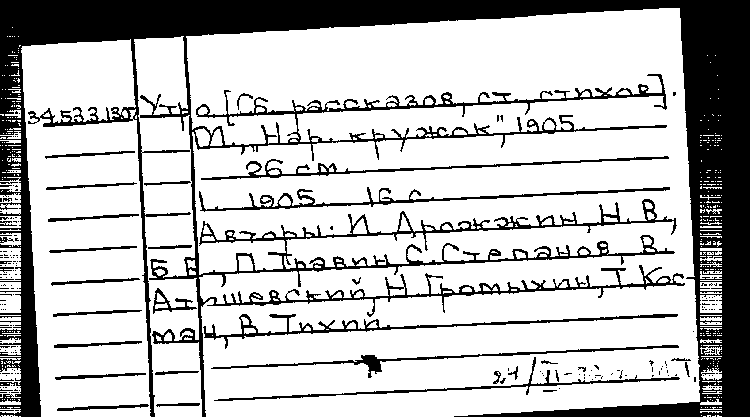 34.5233.130 Утро [Сб. рассказов, ст., стихов].
М., „Нар. кружок", 1905.
26 см.
1. 1905. 16 с.
Авторы: И. Дрожжин, Н. В.,
Б Б., П. Травин, С. Степанов, В.
Н. Громыхин, Т. Кос-
ман, В. Тихий.
24/VI